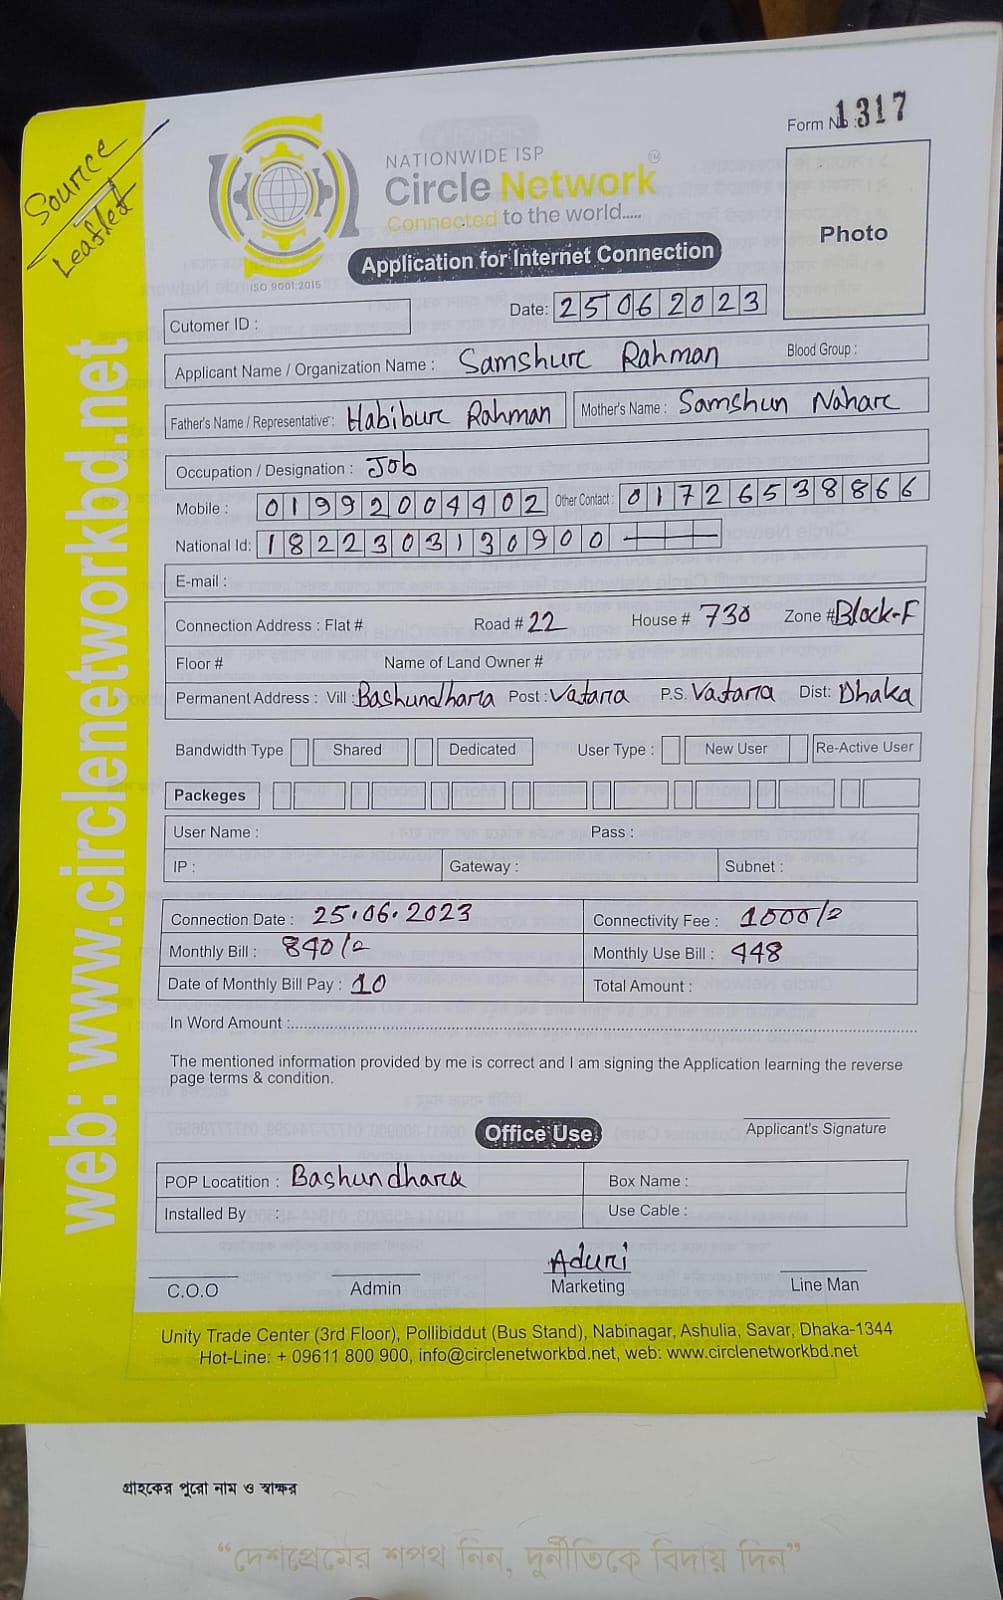 Source
Leafled
NATIONWIDE ISP
Circle Network TM
Connected to the world.....
ISO 9001:2015
Application for Internet Connection
Form No 1317
Photo
Cutomer ID :
Date: 25062023
Applicant Name / Organization Name : Samshurc Rahman Blood Group :
Father's Name / Representative : Habiburc Rahman Mother's Name : Samshun Naharc
Occupation / Designation : Job
Mobile : 01992004402 Other Contact : 01726538866
National Id: 1822303130900
E-mail :
Connection Address : Flat # Road # 22 House # 730 Zone # Block-F
Floor # Name of Land Owner #
Permanent Address : Vill : Bashundhara Post : Vatara P.S. Vatara Dist: Dhaka
Bandwidth Type Shared Dedicated User Type : New User Re-Active User
Packeges
User Name : Pass :
IP : Gateway : Subnet :
Connection Date : 25.06.2023 Connectivity Fee : 1000/=
Monthly Bill : 840/= Monthly Use Bill : 448
Date of Monthly Bill Pay : 10 Total Amount :
In Word Amount :
The mentioned information provided by me is correct and I am signing the Application learning the reverse
page terms & condition.
Applicant's Signature
Office Use
POP Locatition : Bashundhara Box Name :
Installed By : Use Cable :
Aduri
C.O.O Admin Marketing Line Man
Unity Trade Center (3rd Floor), Pollibiddut (Bus Stand), Nabinagar, Ashulia, Savar, Dhaka-1344
Hot-Line: + 09611 800 900, info@circlenetworkbd.net, web: www.circlenetworkbd.net
web: www.circlenetworkbd.net
গ্রাহকের পুরো নাম ও স্বাক্ষর
“দেশপ্রেমের শপথ নিন, দুর্নীতিকে বিদায় দিন”